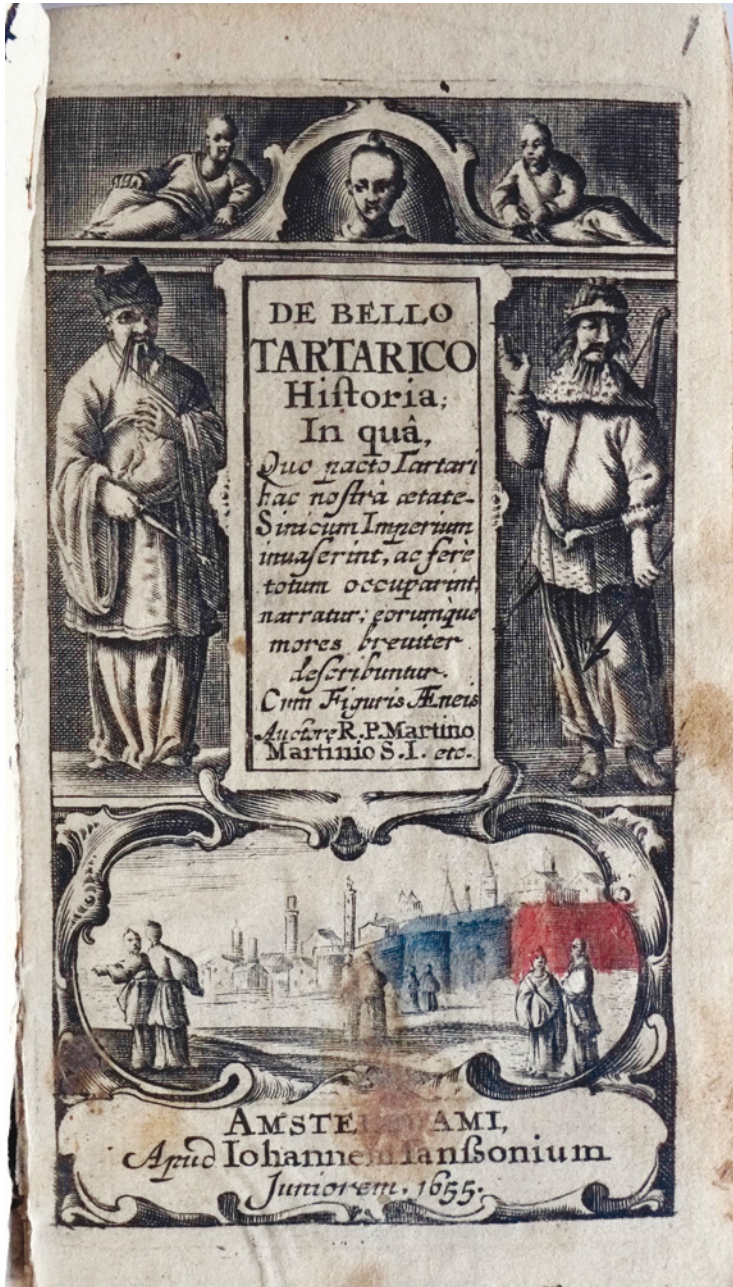 DE BELLO
TARTARICO
Hiſtoria;
In quâ,
Quo pacto Tartari
hac noſtrâ ætate
Sinicum Imperium
inuaſerint, ac ferè
totum occuparint,
narratur; eorumque
mores breuiter
deſcribuntur.
Cum Figuris Æneis
Auctore R.P. Martino
Martinio S.I. etc.
Apud
Juniorem. 1655.